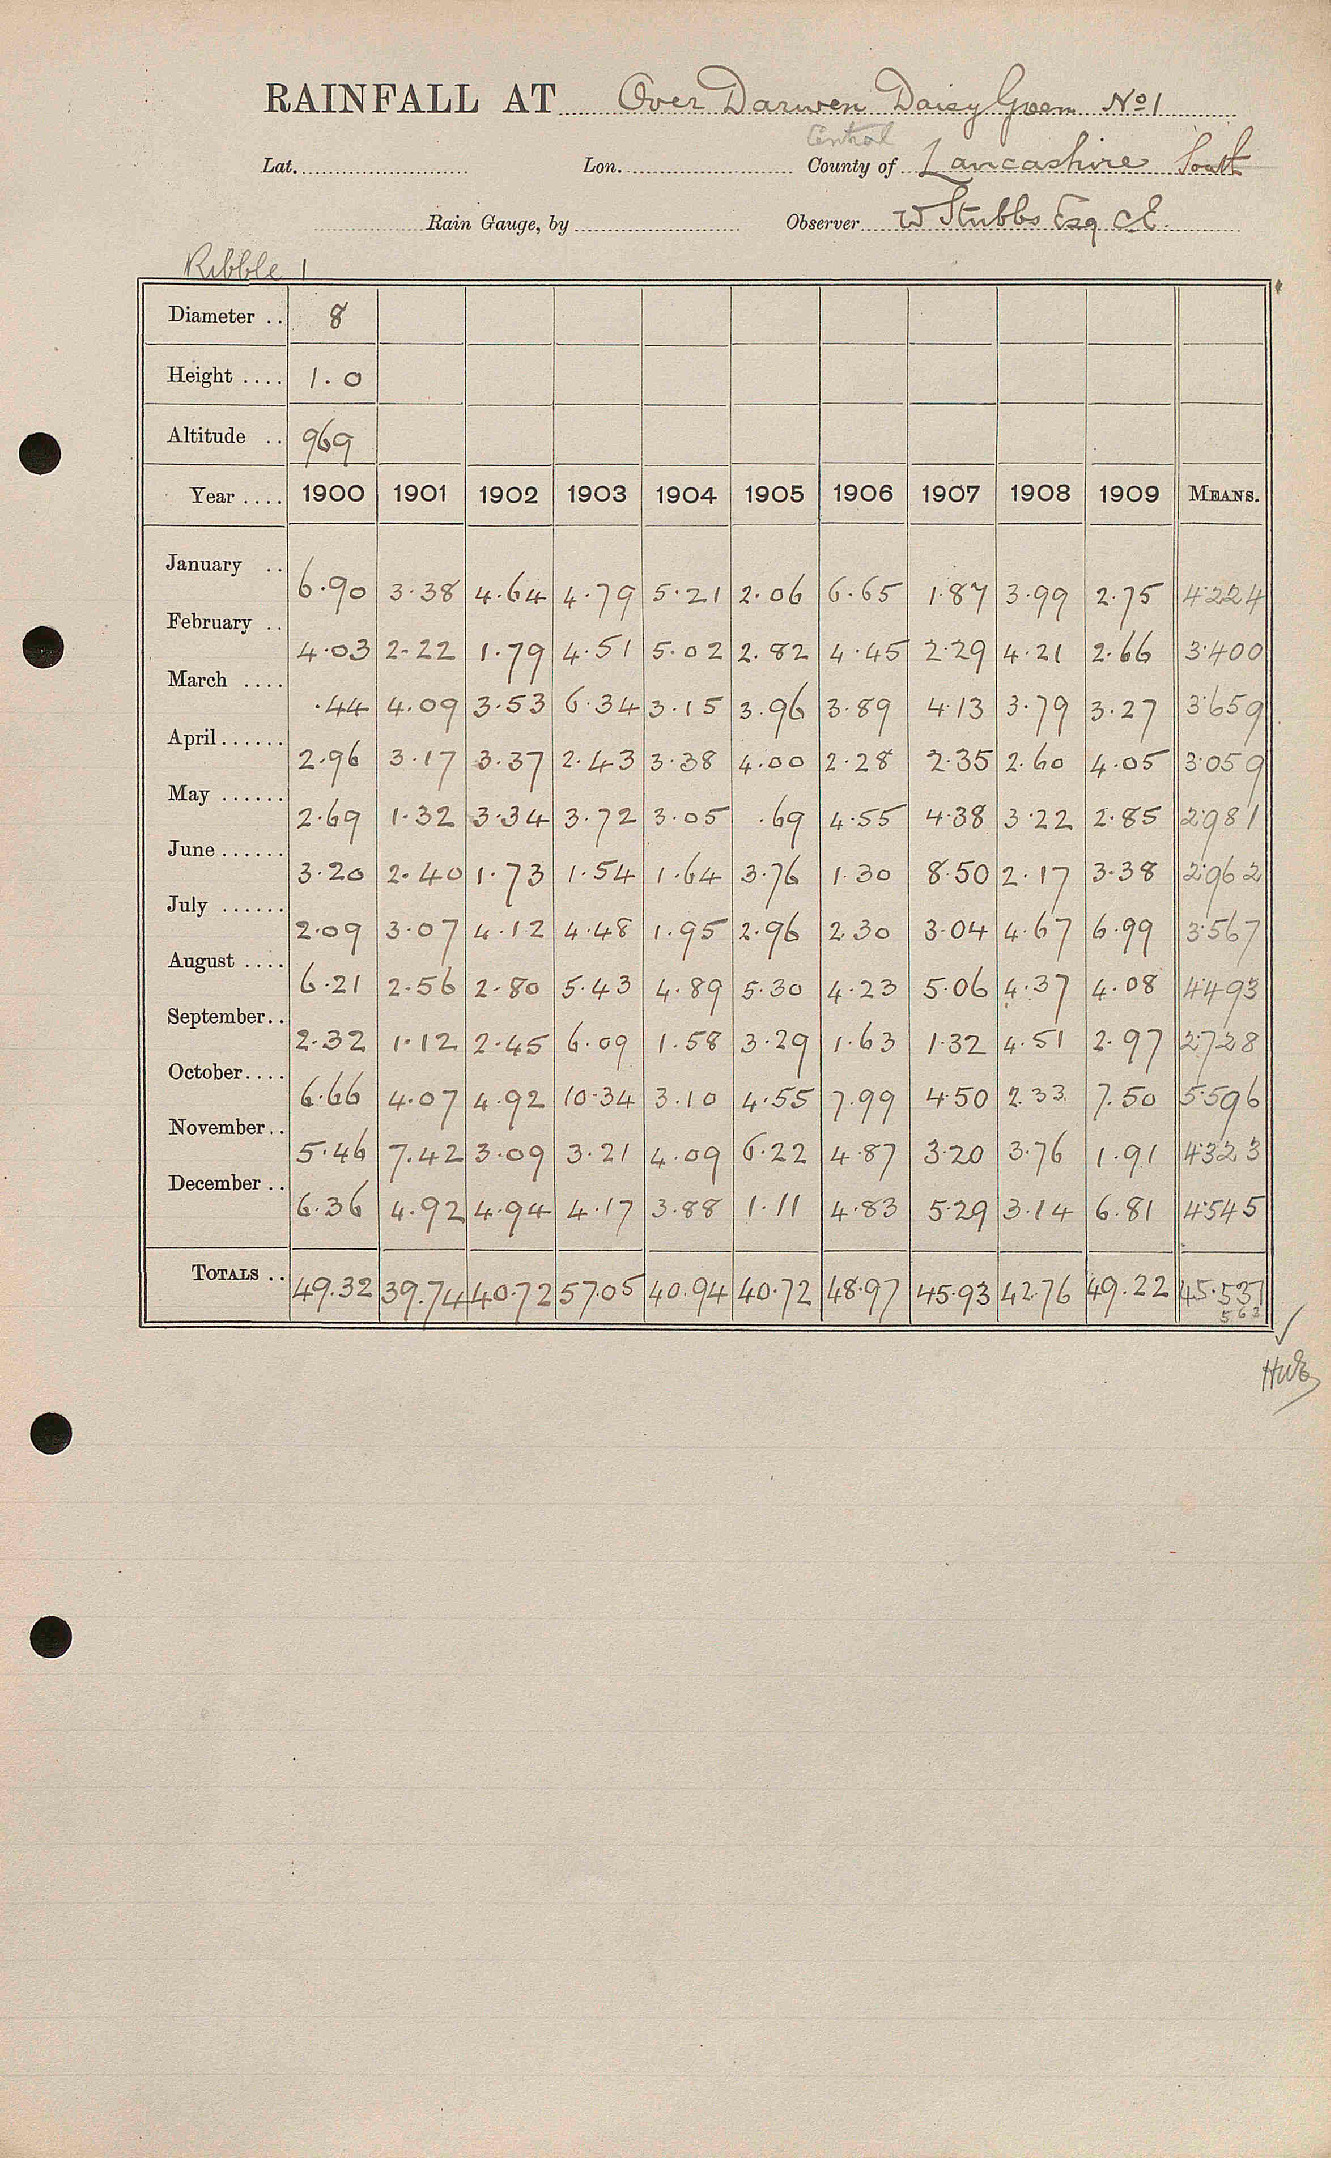 RAINFALL AT Over Darwen Daisy Green No 1
Central
Lat. Lon. County of Lancashire South
Rain Gauge, by Observer W Stubbs Esq CE.
Ribble 1
Diameter .. 8
Height .... 1.0
Altitude .. 969
Year .... 1900 1901 1902 1903 1904 1905 1906 1907 1908 1909 MEANS.
January .. 6.90 3.38 4.64 4.79 5.21 2.06 6.65 1.87 3.99 2.75 4.224
February .. 4.03 2.22 1.79 4.51 5.02 2.82 4.45 2.29 4.21 2.66 3.400
March .... .44 4.09 3.53 6.34 3.15 3.96 3.89 4.13 3.79 3.27 3.659
April...... 2.96 3.17 3.37 2.43 3.38 4.00 2.28 2.35 2.60 4.05 3.059
May ...... 2.69 1.32 3.34 3.72 3.05 .69 4.55 4.38 3.22 2.85 2.981
June ...... 3.20 2.40 1.73 1.54 1.64 3.76 1.30 8.50 2.17 3.38 2.962
July ...... 2.09 3.07 4.12 4.48 1.95 2.96 2.30 3.04 4.67 6.99 3.567
August .... 6.21 2.56 2.80 5.43 4.89 5.30 4.23 5.06 4.37 4.08 4.493
September.. 2.32 1.12 2.45 6.09 1.58 3.29 1.63 1.32 4.51 2.97 2.728
October.... 6.66 4.07 4.92 10.34 3.10 4.55 7.99 4.50 2.33 7.50 5.596
November.. 5.46 7.42 3.09 3.21 4.09 6.22 4.87 3.20 3.76 1.91 4.323
December .. 6.36 4.92 4.94 4.17 3.88 1.11 4.83 5.29 3.14 6.81 4.545
TOTALS .. 49.32 39.74 40.72 57.05 40.94 40.72 48.97 45.93 42.76 49.22 45.537
563